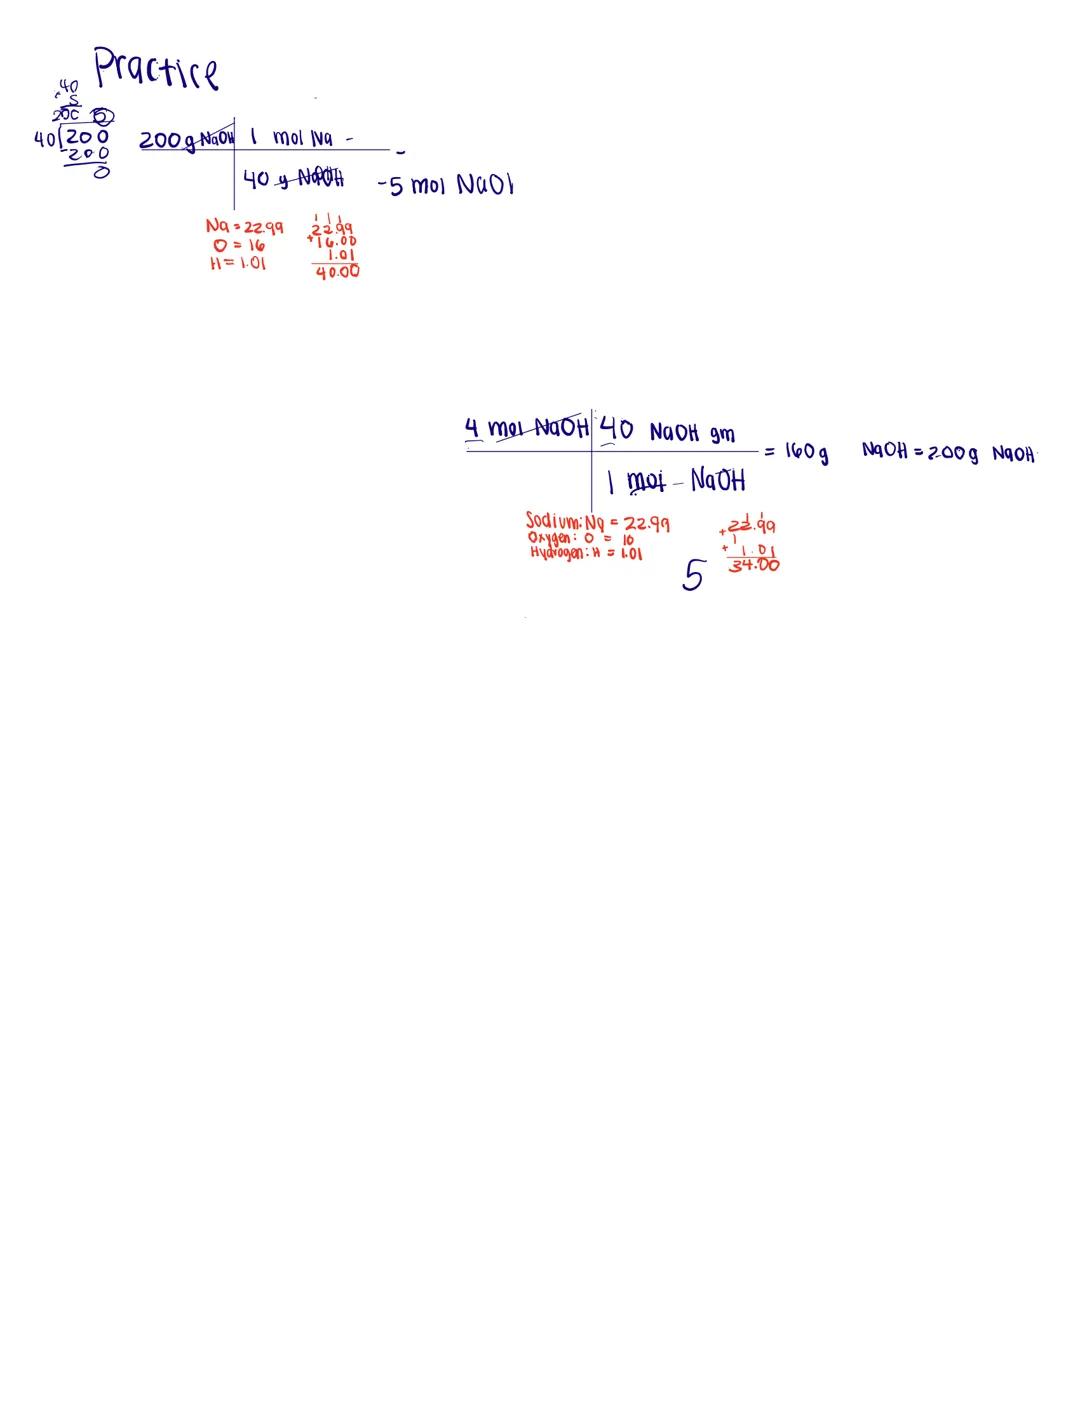 Practice
40
5
200 5
40 200
-200
0
200g NaOH 1 mol Na -
40 g NaOH
-5 mol NaOl
Na = 22.99
O = 16
H = 1.01
1 1 1
22.99
+16.00
1.01
40.00
4 mol NaOH 40 NaOH gm
1 mol - NaOH
= 160g NaOH = 200g NaOH
Sodium: Na = 22.99
Oxygen: O = 16
Hydrogen: H = 1.01
1 1
+22.99
1
+ 1.01
34.00
5